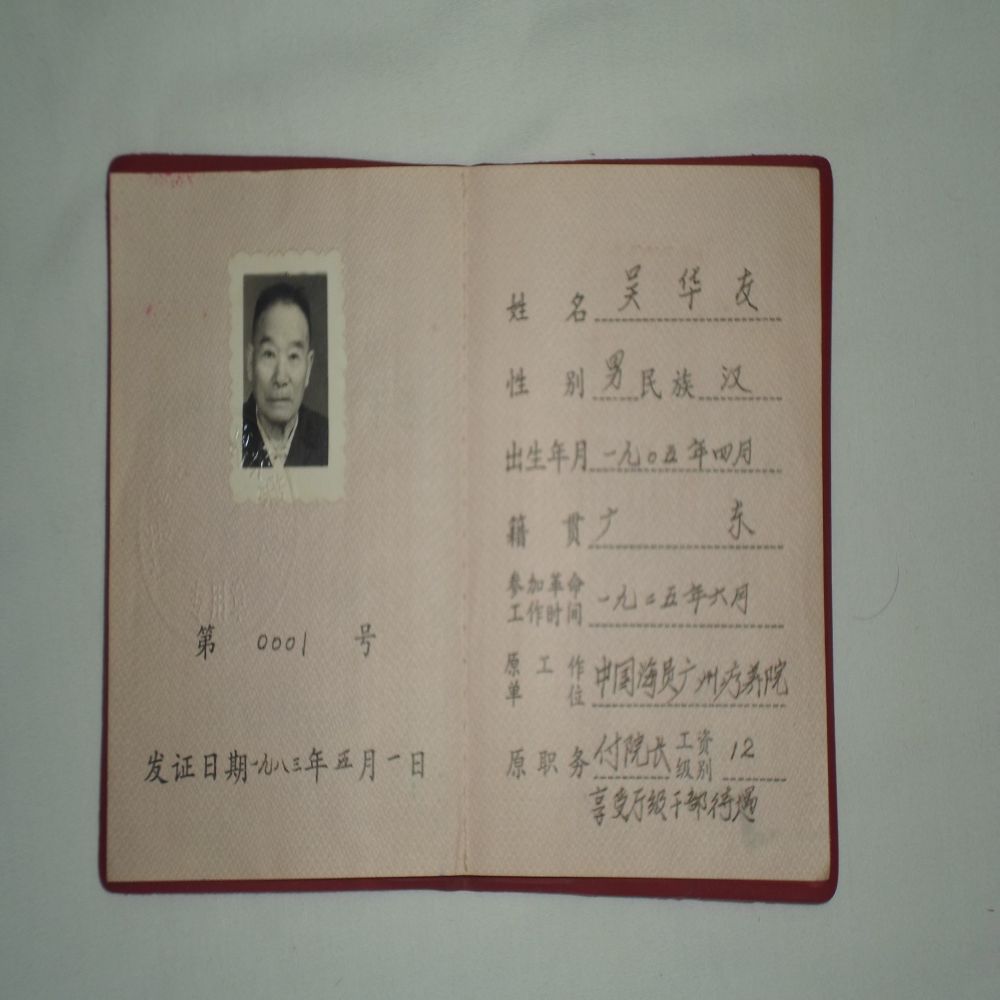 第 0001 号
发证日期一九八三年五月一日
姓名 吴华友
性别 男 民族 汉
出生年月 一九〇五年四月
籍贯 广东
参加革命工作时间 一九二五年六月
原工作单位 中国海员广州疗养院
原职务 付院长 工资级别 12
享受厅级干部待遇